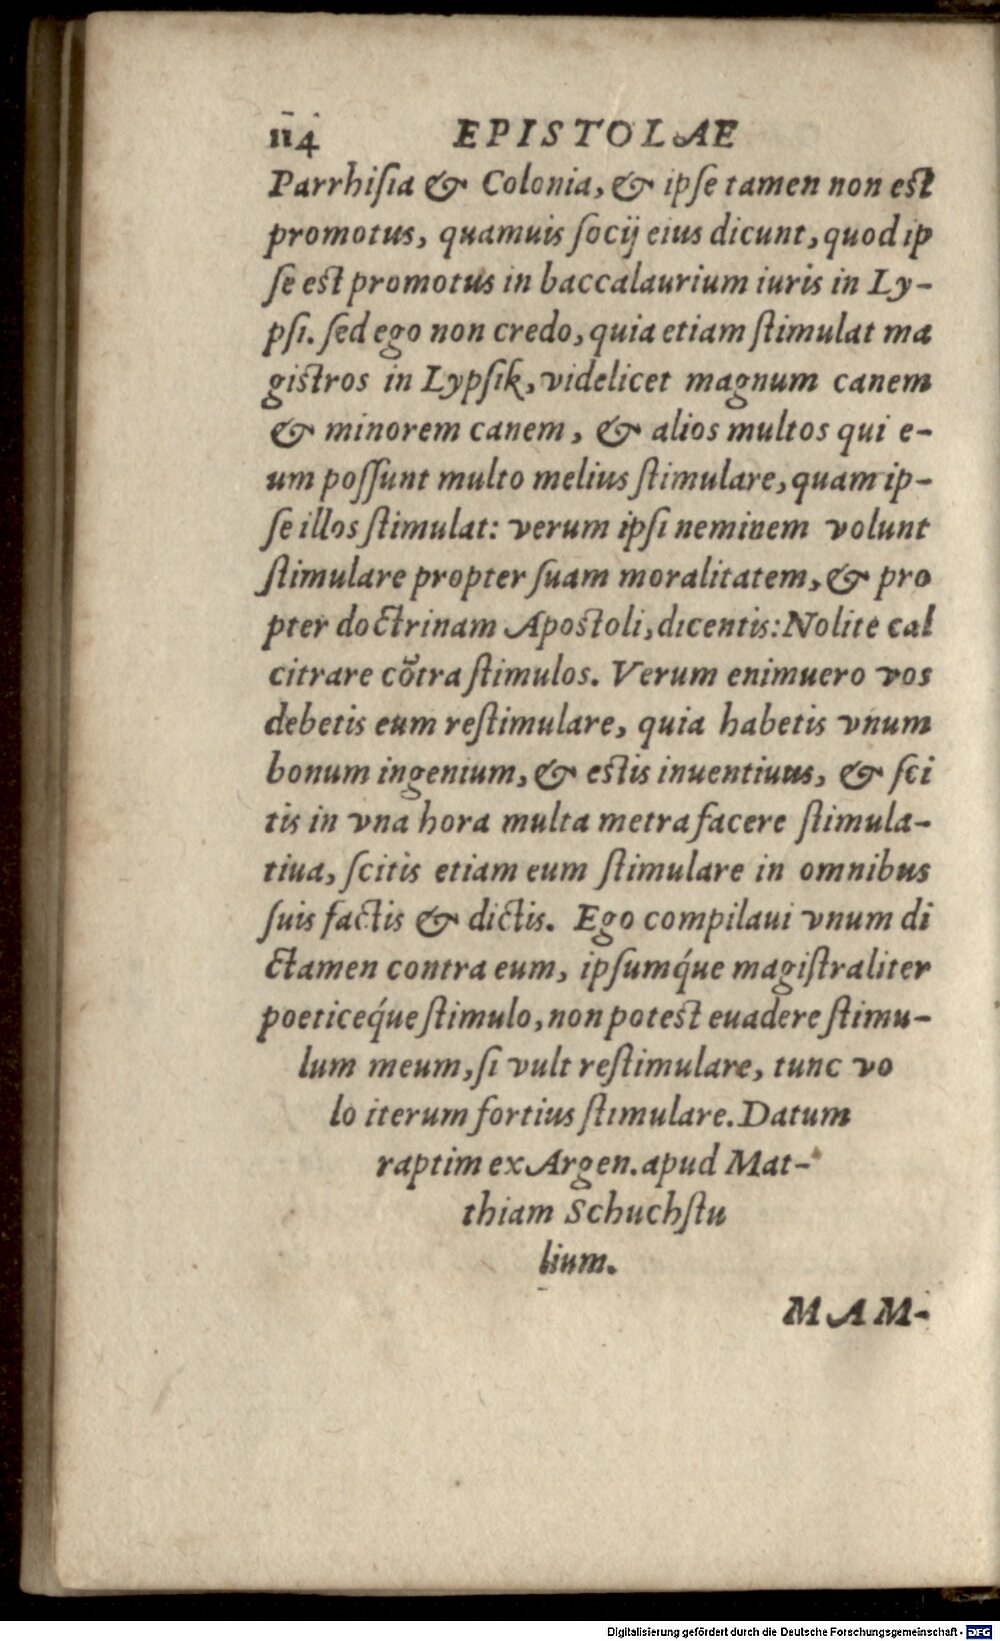 114 EPISTOLAE
Parrhiſia & Colonia, & ipſe tamen non est
promotus, quamuis ſocij eius dicunt, quod ip
ſe est promotus in baccalaurium iuris in Ly-
pſi. ſed ego non credo, quia etiam ſtimulat ma
gistros in Lypſik, videlicet magnum canem
& minorem canem, & alios multos qui e-
um poſſunt multo melius ſtimulare, quam ip-
ſe illos ſtimulat: verum ipſi neminem volunt
ſtimulare propter ſuam moralitatem, & pro
pter doctrinam Apostoli, dicentis: Nolite cal
citrare cõtra ſtimulos. Verum enimuero vos
debetis eum reſtimulare, quia habetis vnum
bonum ingenium, & estis inuentiuus, & ſci
tis in vna hora multa metra facere ſtimula-
tiua, ſcitis etiam eum ſtimulare in omnibus
ſuis factis & dictis. Ego compilaui vnum di
ctamen contra eum, ipſumq́ue magiſtraliter
poeticeq́ue ſtimulo, non potest euadere ſtimu-
lum meum, ſi vult reſtimulare, tunc vo
lo iterum fortius ſtimulare. Datum
raptim ex Argen. apud Mat-
thiam Schuchſtu
lium.
MAM-
Digitalisierung gefördert durch die Deutsche Forschungsgemeinschaft - DFG